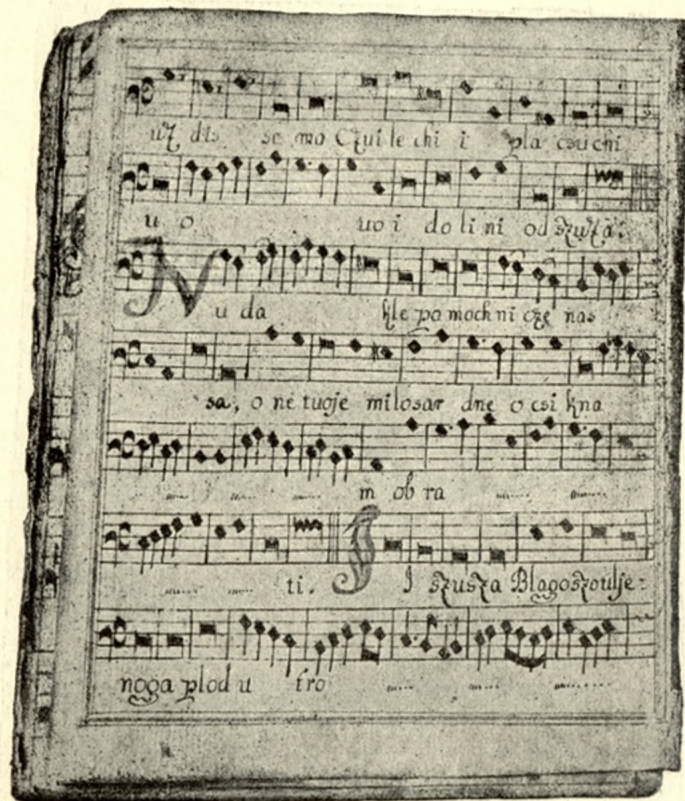 uz dis se mo Czuile chi i pla csuchi
u o uo i do li ni od szuza:
Nu da kle po moch ni cze nas
sa, o ne tuoje milosar dne o csi kna
m ob ra
ti. I I szusza Blagoszoulje=
noga plod u tro